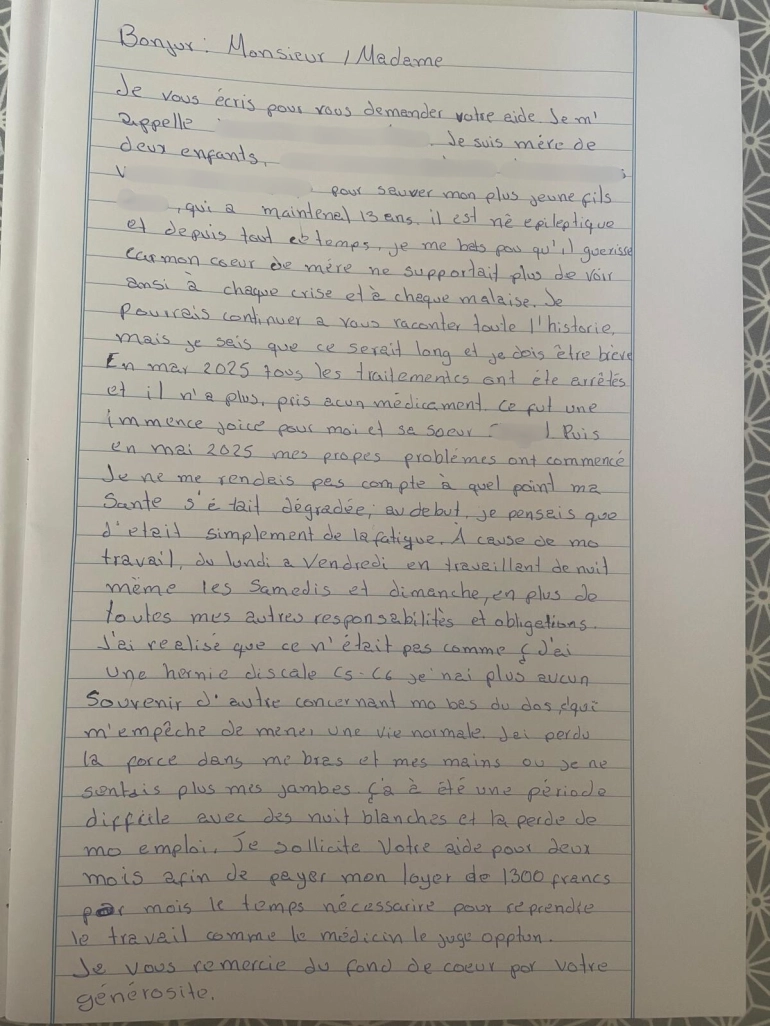 Bonjur : Monsieur / Madame
Je vous écris pour vous demander votre aide. Je m'
appelle
Je suis mére de
deux enfants,
V
pour sauver mon plus jeune fils
, qui a maintenal 13 ans. il est nè epileptique
et depuis tout ce temps, je me bats pou qu'il guerisse
car mon coeur de mére ne supportait plus de voir
ansi à chaque crise et à chaque malaise. Je
pourrais continuer a vous raconter toute l'historie,
mais je sais que ce serait long et je dois être brève
En mar 2025 tous les traitementcs ont éte arrêtés
et il n'a plus, pris acun médicament. Ce fut une
immence joice pour moi et sa soeur
! Puis
en mai 2025 mes propes problémes ont commencé
Je ne me rendais pas compte à quel point ma
Sante s'é tait dégradée, au debut, je pensais que
d'etait simplement de la fatigue. À cause de mo
travail, du lundi a Vendredi en travaillant de nuit
même les Samedis et dimanche, en plus de
toutes mes autres responsabilitès et obligations.
J'ai realisé que ce n'était pas comme ç J'ai
une hernie discale C5-C6 je nai plus aucun
Souvenir d'autre concernant mo bas du dos, qui
m'empêche de mener une vie normale. Jai perdu
la force dans me bras et mes mains ou je ne
sentais plus mes jambes. ça à été une période
difficile avec des nuit blanches et la perde de
mo emploi. Je sollicite Votre aide pour deux
mois afin de payer mon loyer de 1300 francs
par mois le temps nécessarire pour reprendre
le travail comme le médicin le juge opptun.
Je vous remercie du fond de coeur por votre
générosite.